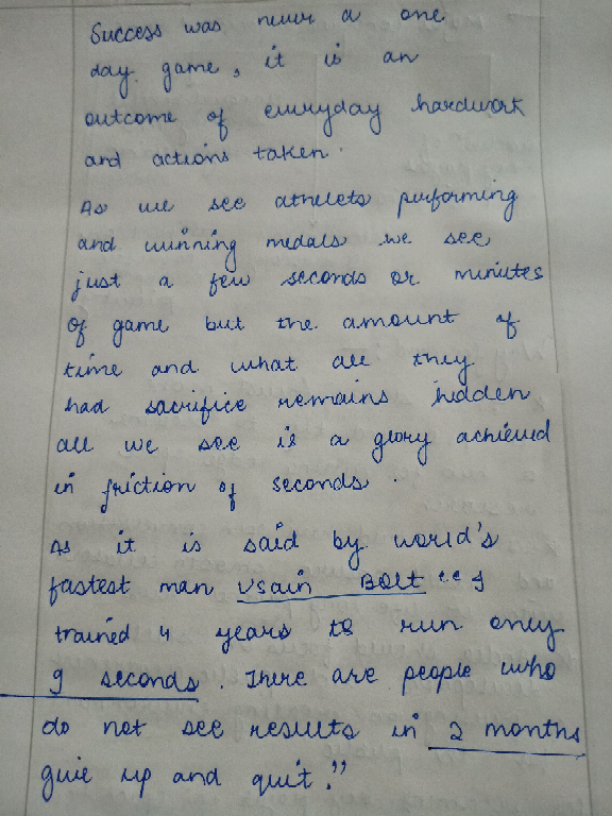 Success was never a one
day game, it is an
outcome of everyday hardwork
and actions taken.
As we see athelets performing
and winning medals we see
just a few seconds or miniutes
of game but the amount of
time and what all they
had sacrifice remains hidden
all we see is a glory achieved
in friction of seconds.
As it is said by world's
fastest man Usain Bolt "I
trained 4 years to run only
9 seconds. There are people who
do not see results in 2 months
give up and quit."